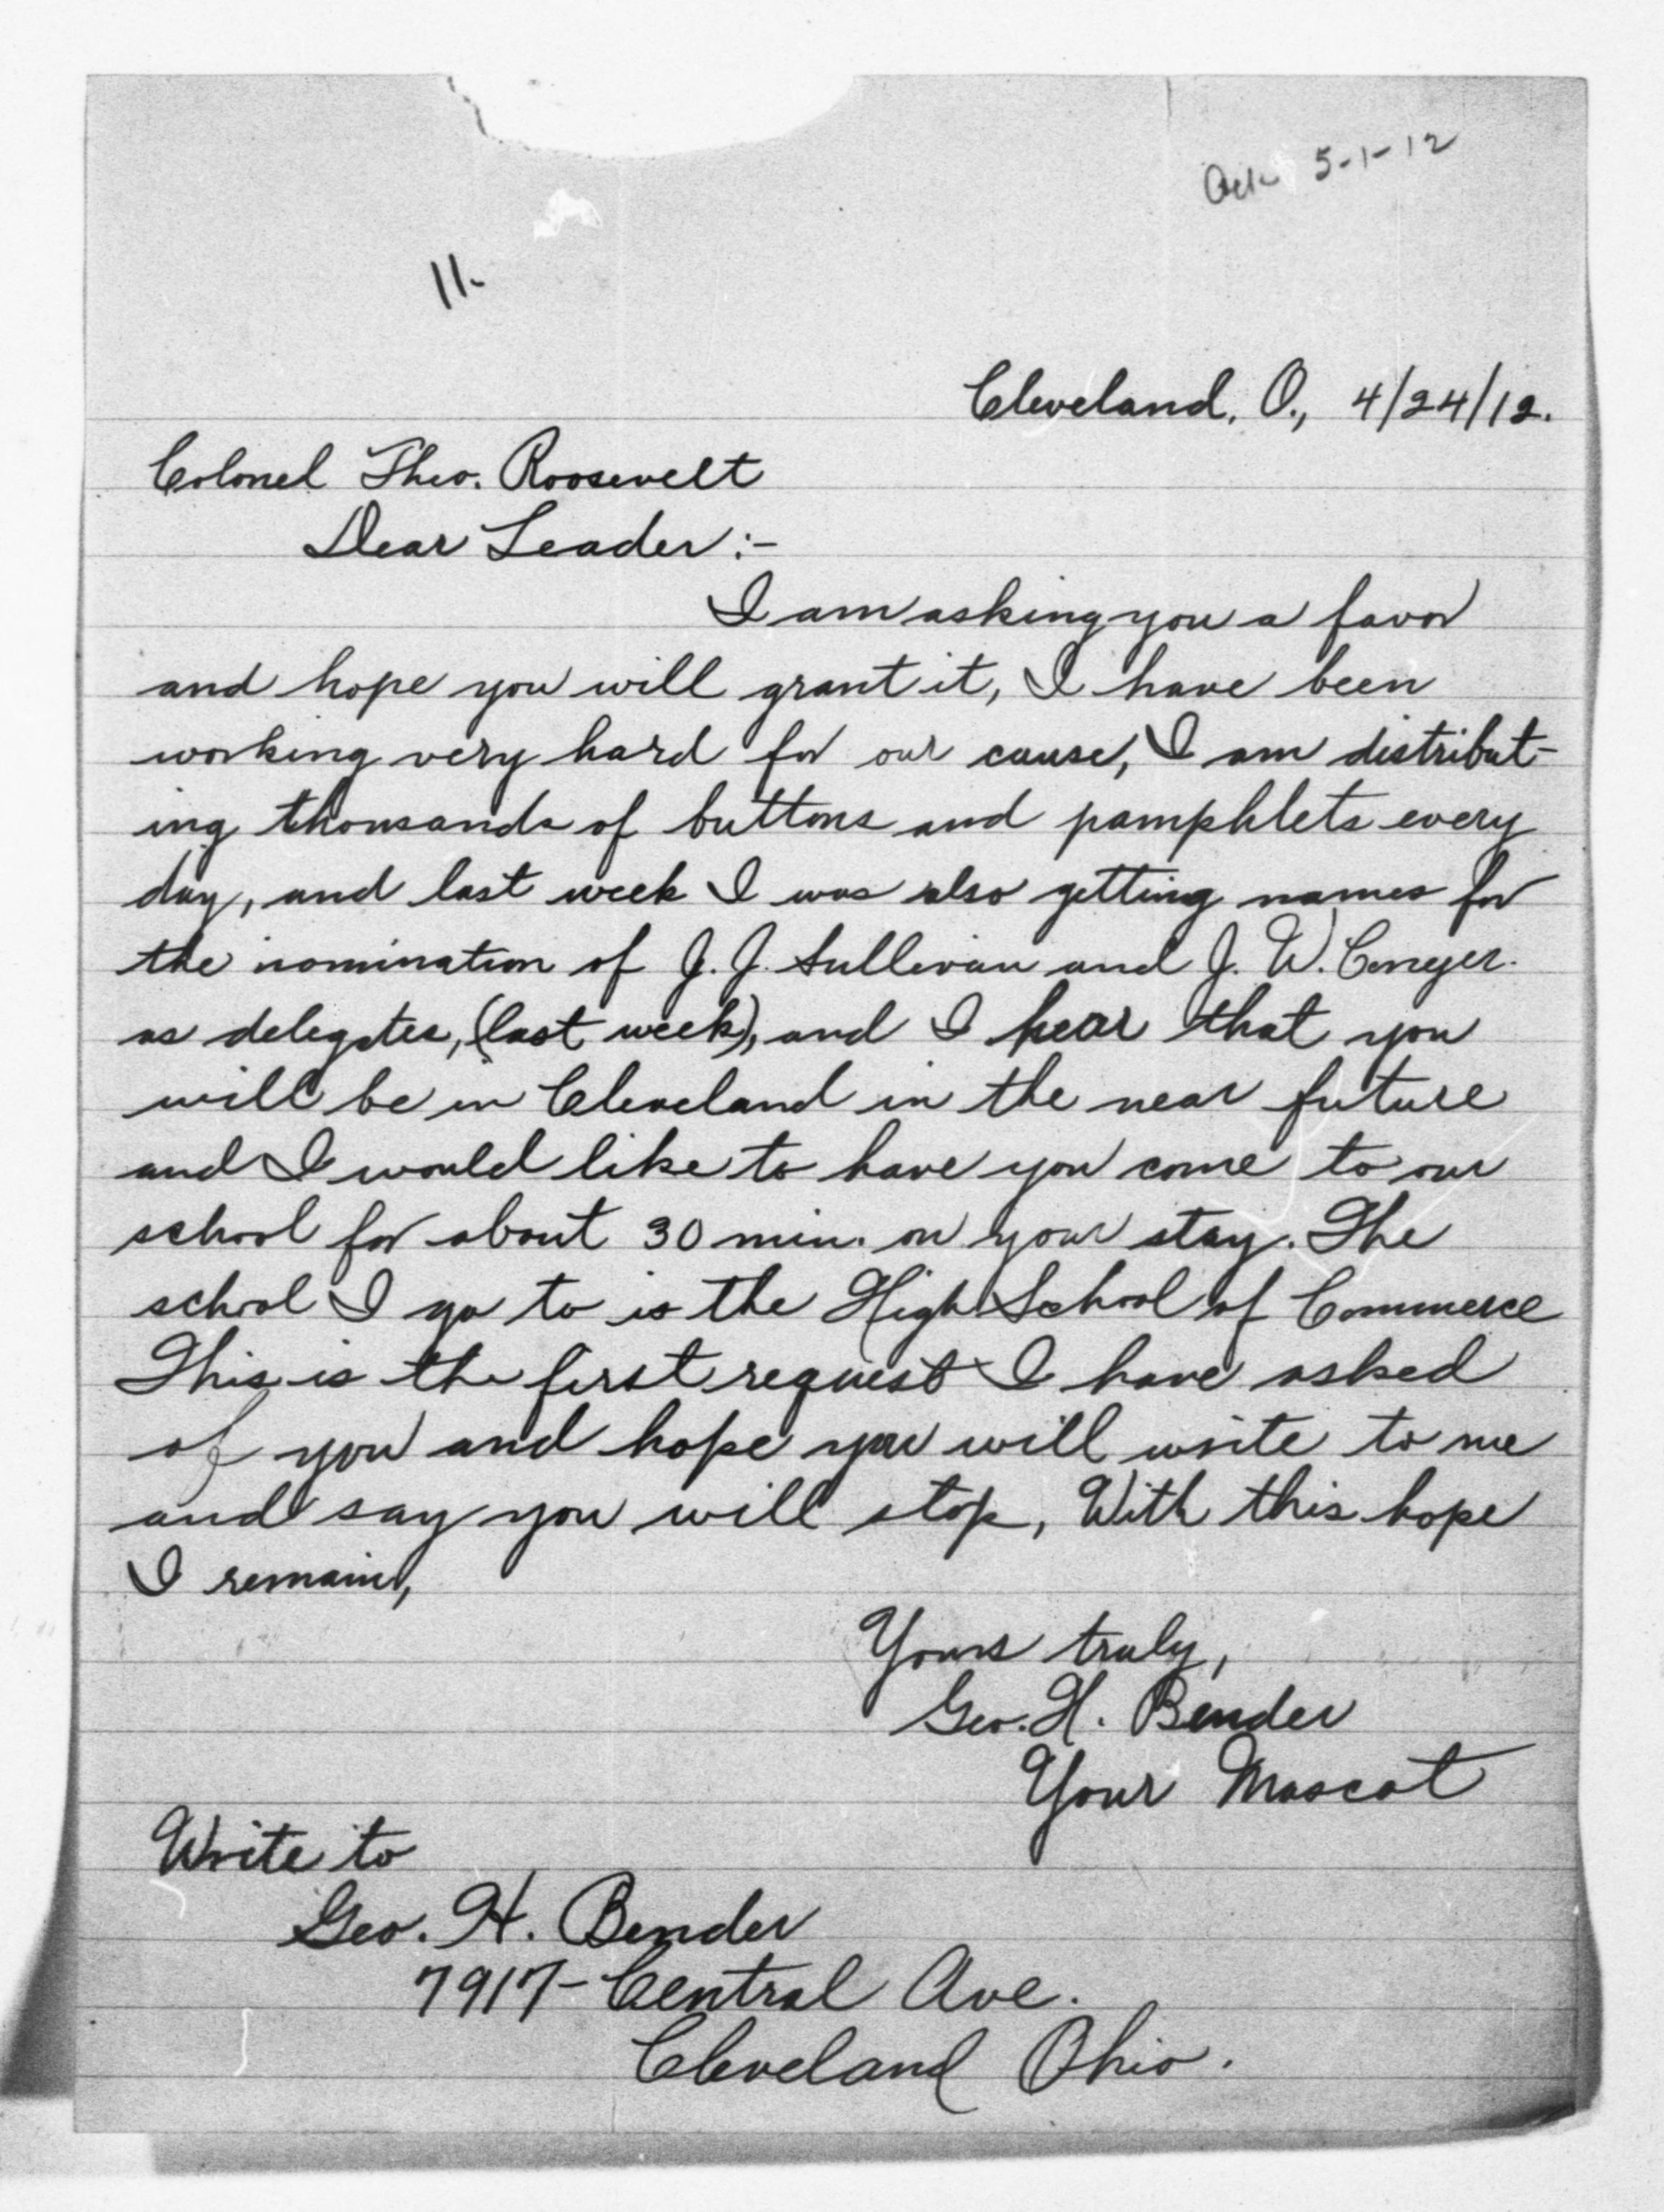 Ack 5-1-12
11-
Cleveland, O., 4/24/12.
Colonel Theo. Roosevelt
Dear Leader:-
I am asking you a favor
and hope you will grant it, I have been
working very hard for our cause, I am distribut-
ing thousands of buttons and pamphlets every
day, and last week I was also getting names for
the nomination of J. J. Sullivan and J. W. Conger.
as delegates, (last week), and I hear that you
will be in Cleveland in the near future
and I would like to have you come to our
school for about 30 min. on your stay. The
school I go to is the High School of Commerce
This is the first request I have asked
of you and hope you will write to me
and say you will stop, With this hope
I remain,
Yours truly,
Geo. H. Bender
Your Mascot
Write to
Geo. H. Bender
7917- Central Ave.
Cleveland Ohio.